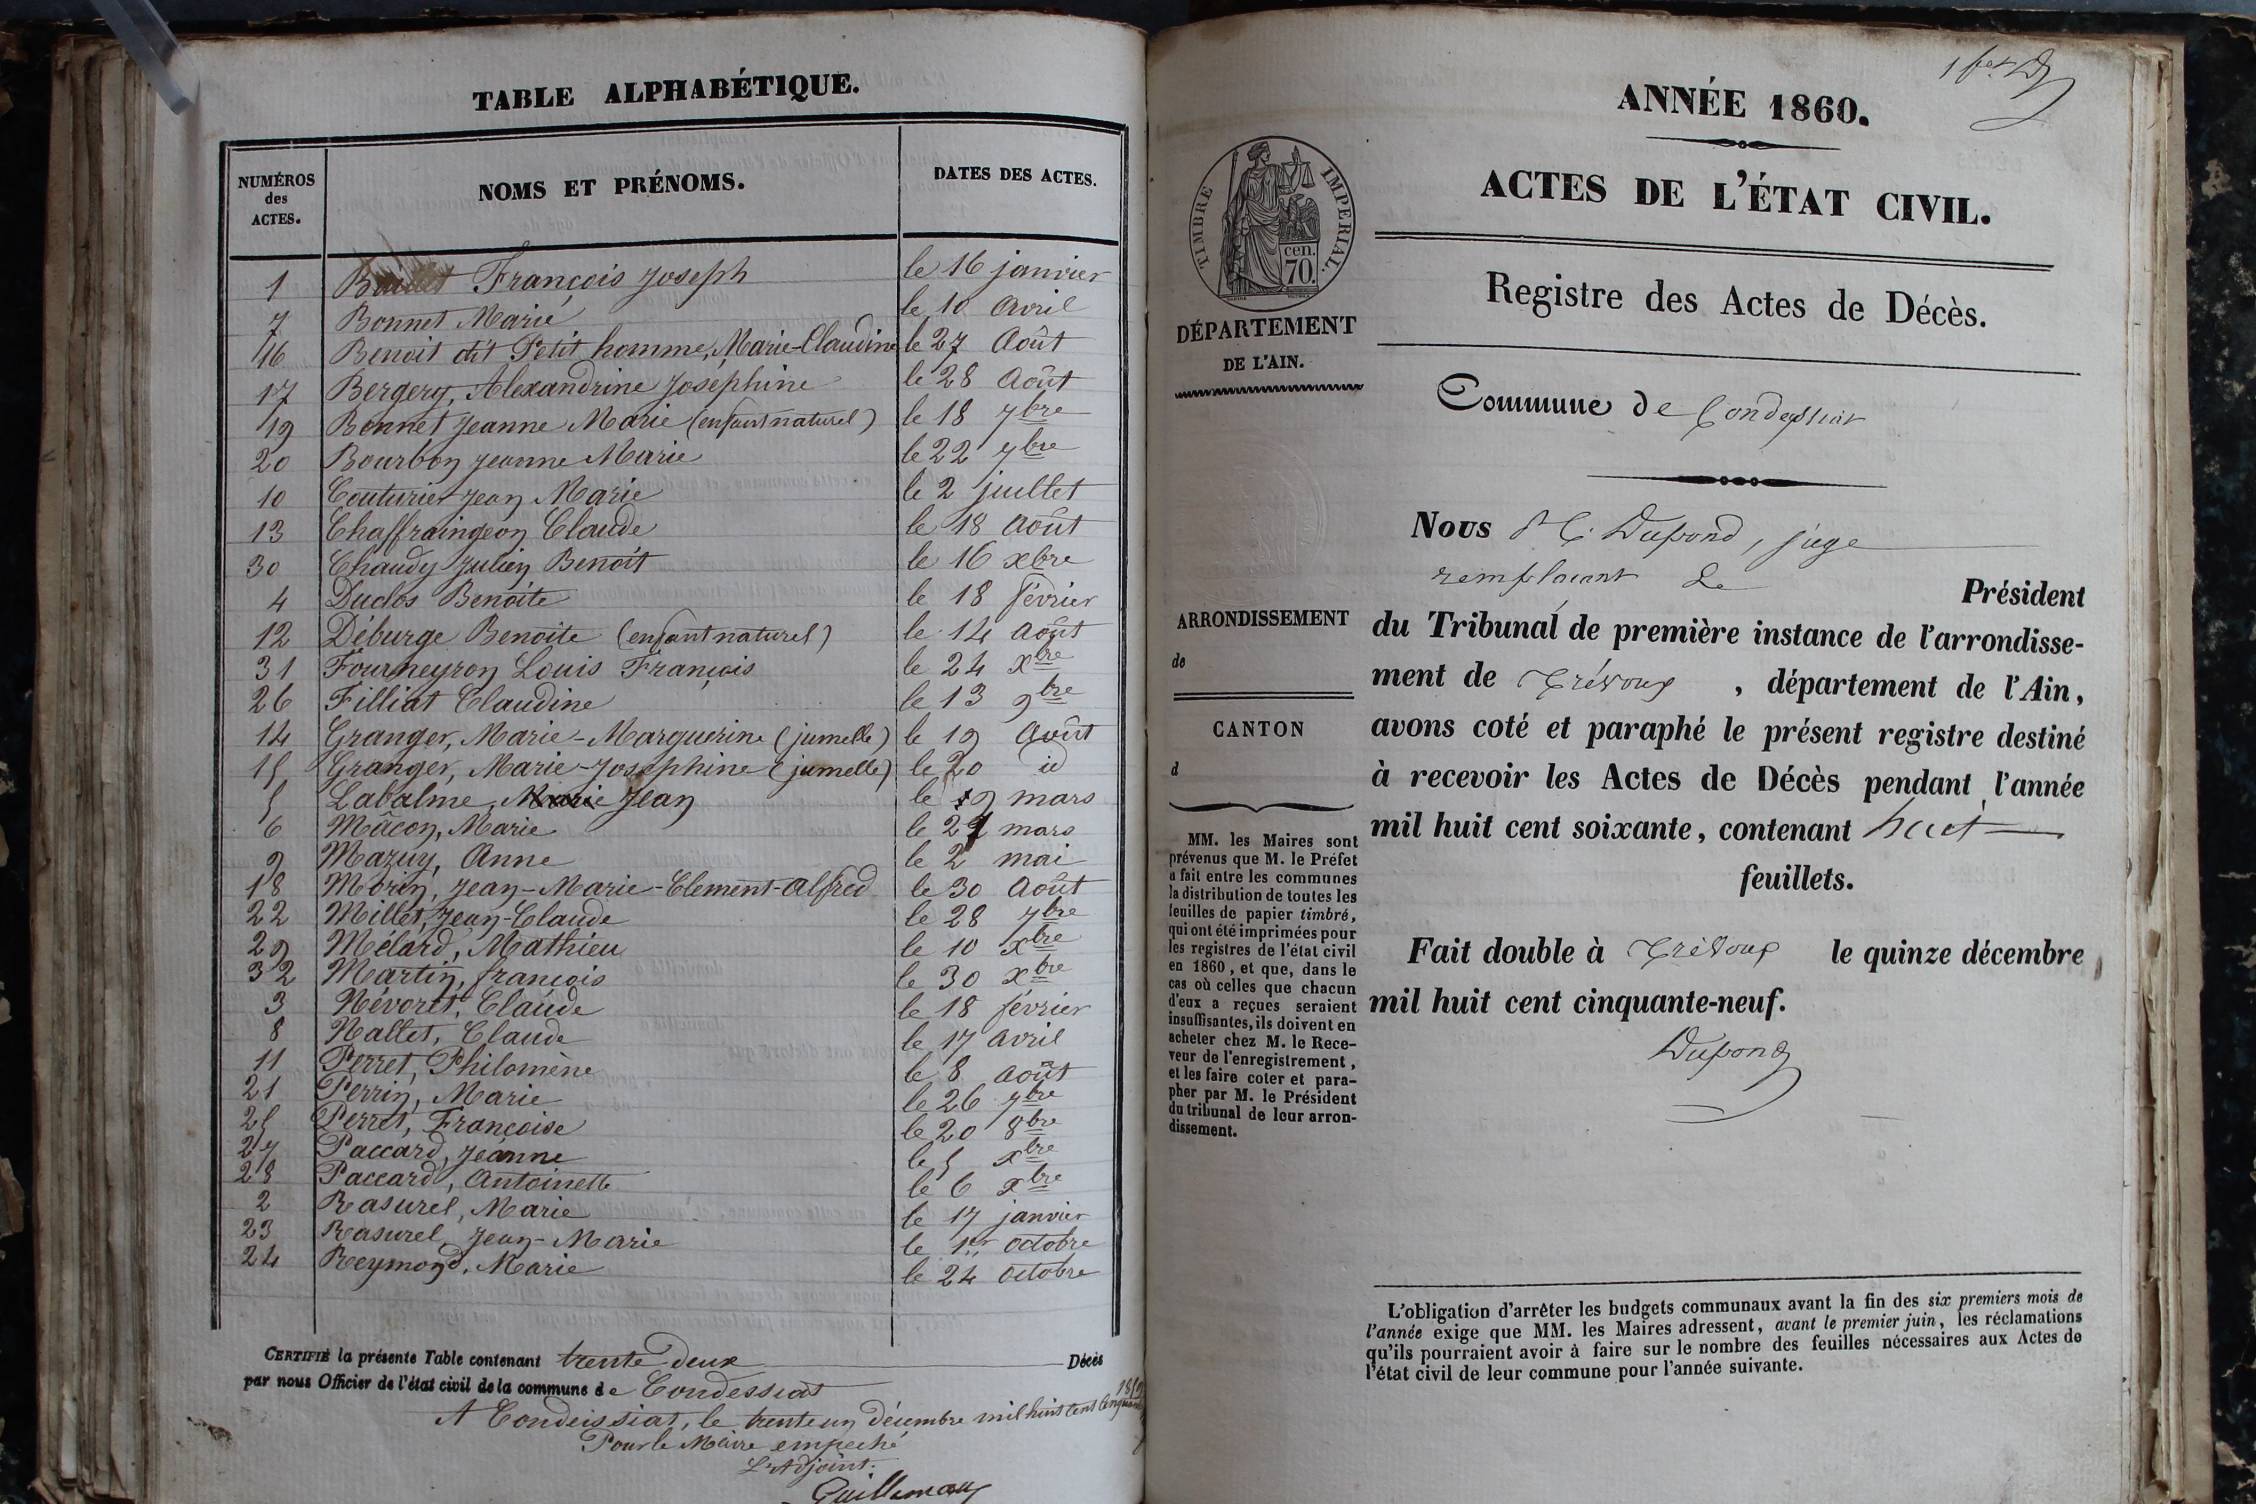 TABLE ALPHABÉTIQUE.
NUMÉROS des ACTES. NOMS ET PRÉNOMS. DATES DES ACTES.
1 François Joseph le 16 janvier
7 Bonnet Marie le 10 Avril
16 Benoit dit Petit homme, Marie-Claudine le 27 Août
17 Bergery, Alexandrine Joséphine le 28 Août
19 Bonnet Jeanne Marie (enfant naturel) le 18 7bre
20 Bourbon Jeanne Marie le 22 7bre
10 Couturier Jean Marie le 2 juillet
13 Chaffraingeon Claude le 18 Août
30 Chaudy Julien Benoît le 16 xbre
4 Duclos Benoîte le 18 février
12 Déburge Benoite (enfant naturel) le 14 Août
31 Fourneyron Louis François le 24 xbre
26 Filliat Claudine le 13 9bre
14 Granger, Marie-Marguerine (jumelle) le 19 Août
15 Granger, Marie-Josephine (jumelle) le 20 id
5 Labalme, Marie Jean le 9 mars
6 Mâcon, Marie le 27 mars
9 Mazuy, Anne le 2 mai
18 Morin, Jean-Marie-Clement-Alfred le 30 Août
22 Millet, Jean-Claude le 28 7bre
29 Mélard, Mathieu le 10 xbre
32 Martin, françois le 30 xbre
3 Névoret, Claude le 18 février
8 Nallet, Claude le 17 Avril
11 Perret, Philomène le 8 Août
21 Perrin, Marie le 26 7bre
25 Perret, Françoise le 20 8bre
27 Paccard, Jeanne le 5 xbre
28 Paccard, Antoinette le 6 xbre
2 Rasurel, Marie le 17 janvier
23 Rasurel, Jean-Marie le 1er Octobre
24 Reymond, Marie le 24 Octobre
CERTIFIÉ la présente Table contenant trente deux Décès
par nous Officier de l'état civil de la commune de Condessiat
A Condeissiat, le trente un Décembre mil huit cent cinquante
Pour le Maire empeché
L'Adjoint.
Guillemau
ANNÉE 1860.
ACTES DE L'ÉTAT CIVIL.
Registre des Actes de Décès.
TIMBRE IMPERIAL.
cen.
70.
DÉPARTEMENT
DE L'AIN.
Commune de Condeyssiat
Nous Dupond, juge
remplacant le Président
ARRONDISSEMENT
de
CANTON
d
du Tribunal de première instance de l'arrondisse-
ment de Trévoux, département de l'Ain,
avons coté et paraphé le présent registre destiné
à recevoir les Actes de Décès pendant l'année
mil huit cent soixante, contenant huit
feuillets.
Fait double à Trévoux le quinze décembre
mil huit cent cinquante-neuf.
Dupond
MM. les Maires sont
prévenus que M. le Préfet
a fait entre les communes
la distribution de toutes les
feuilles de papier timbré,
qui ont été imprimées pour
les registres de l'état civil
en 1860, et que, dans le
cas où celles que chacun
d'eux a reçues seraient
insuffisantes, ils doivent en
acheter chez M. le Rece-
veur de l'enregistrement,
et les faire coter et para-
pher par M. le Président
du tribunal de leur arron-
dissement.
L'obligation d'arrêter les budgets communaux avant la fin des six premiers mois de
l'année exige que MM. les Maires adressent, avant le premier juin, les réclamations
qu'ils pourraient avoir à faire sur le nombre des feuilles nécessaires aux Actes de
l'état civil de leur commune pour l'année suivante.